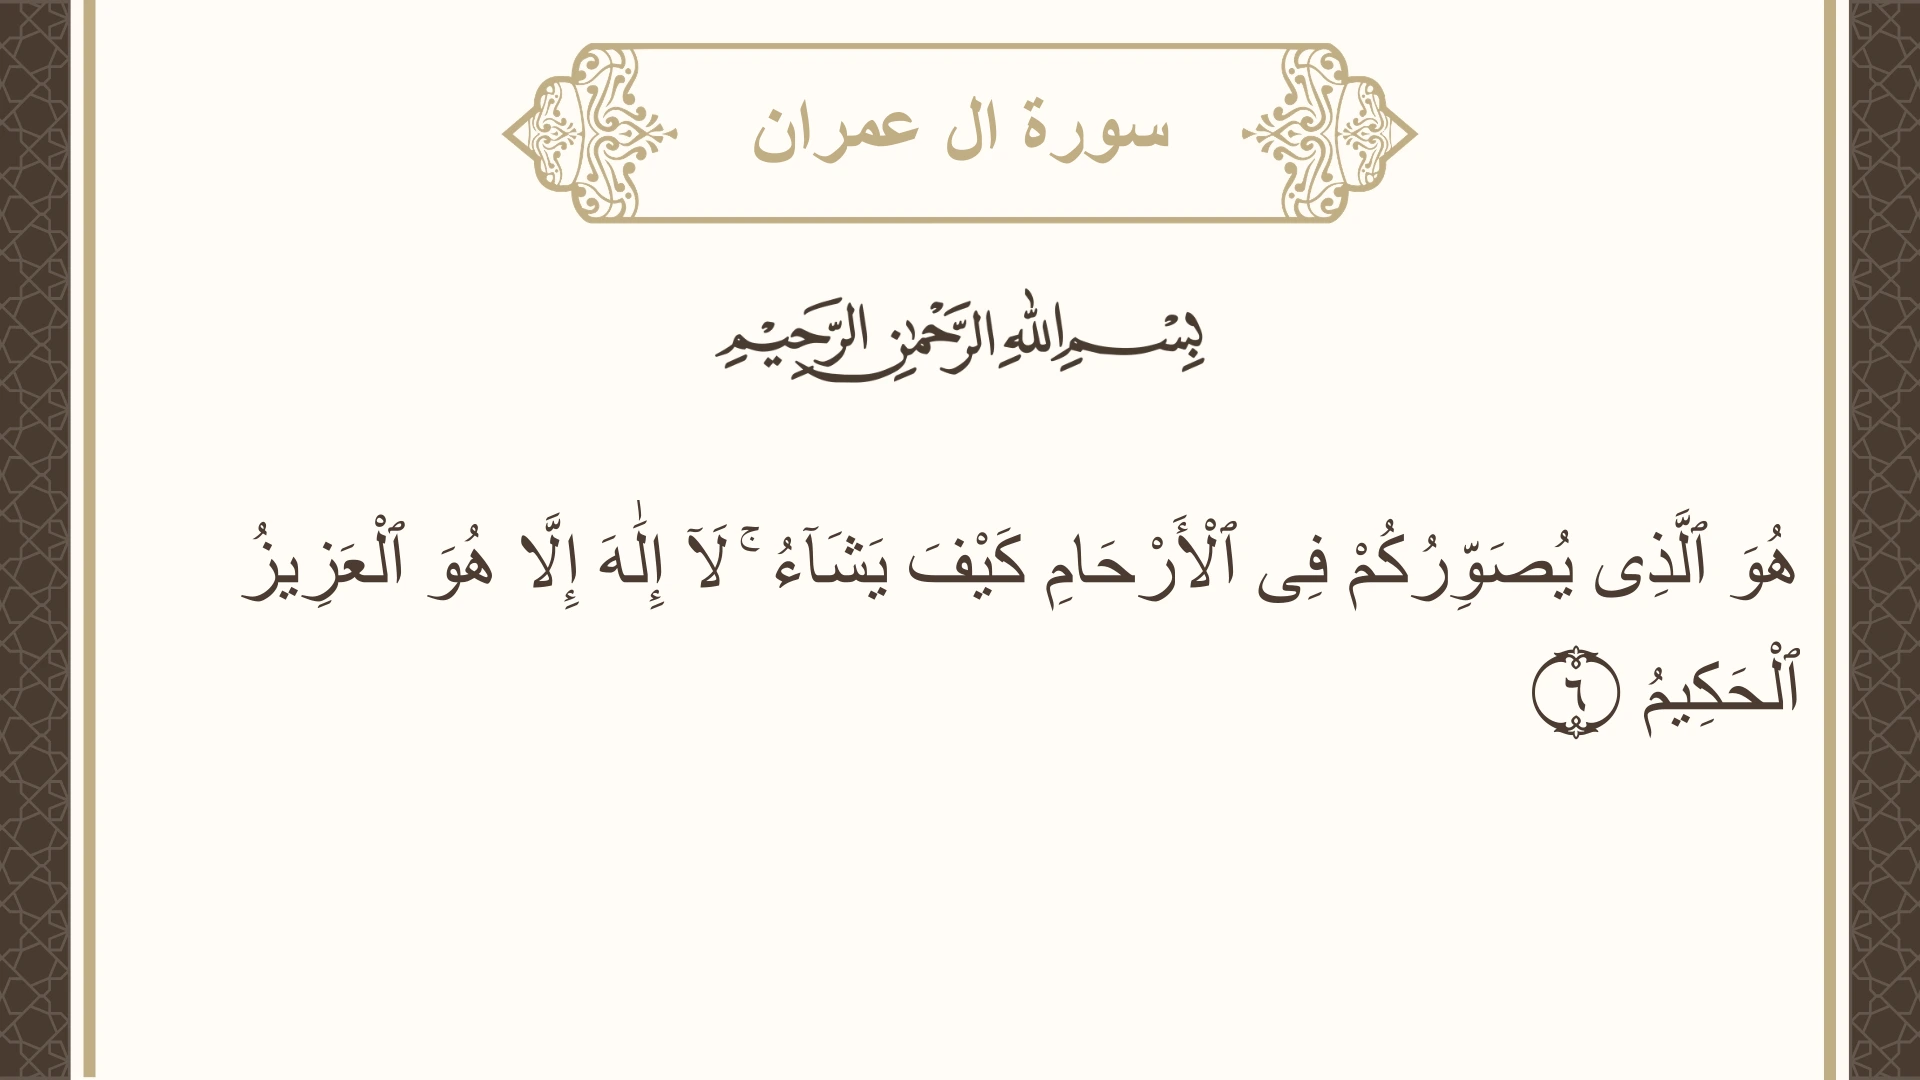 سورة ال عمران
بِسْمِ اللهِ الرَّحْمٰنِ الرَّحِيْمِ
هُوَ ٱلَّذِى يُصَوِّرُكُمْ فِى ٱلْأَرْحَامِ كَيْفَ يَشَآءُ ۚ لَآ إِلَٰهَ إِلَّا هُوَ ٱلْعَزِيزُ
ٱلْحَكِيمُ ٦